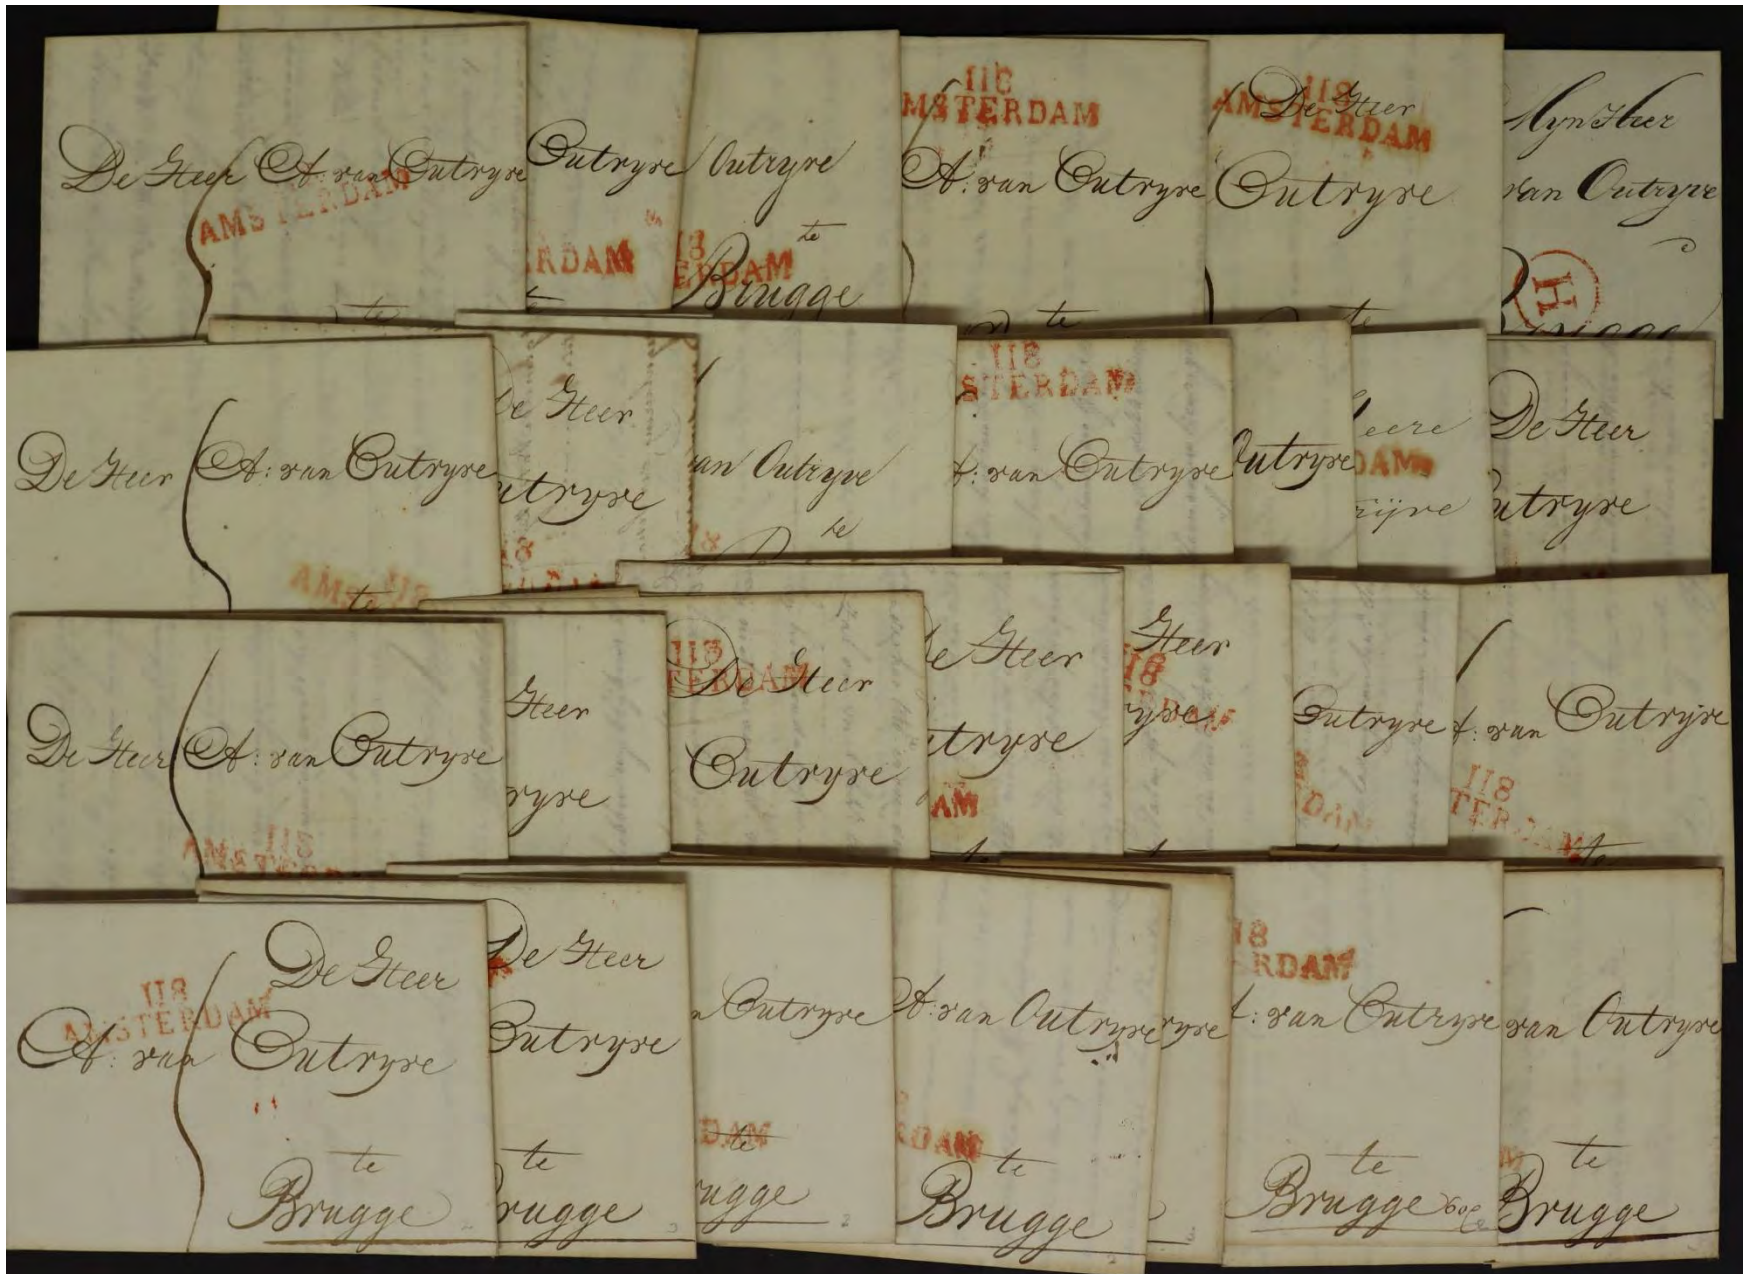 De Heer A. van Outryve
AMSTERDAM
te
Outryve
RDAM
Outryve
te
118
ERDAM
Brugge
118
MSTERDAM
A: van Outryve
te
118
AMSTERDAM
De Heer
Outryve
te
Myn Heer
van Outryve
H
De Heer A: van Outryve
118
AMS
te
De Heer
utryve
18
van Outryve
te
18
118
STERDAM
A: van Outryve
Outryve
eere
DAM
rijve
De Heer
utryve
De Heer A: van Outryve
118
AMSTERD
Heer
ryve
118
TERDAM
De Heer
Outryve
De Heer
utryve
AM
Heer
118
RDAM
ryve
Outryve
RDAM
A: van Outryve
118
TERDAM
te
De Heer
118
AMSTERDAM
A: van Outryve
te
Brugge
De Heer
Outryve
te
Brugge
n Outryve
DAM
te
rugge
A: van Outryve
RDAM
te
Brugge
ryve
18
ERDAM
A: van Outryve
te
Brugge
van Outryve
te
Brugge